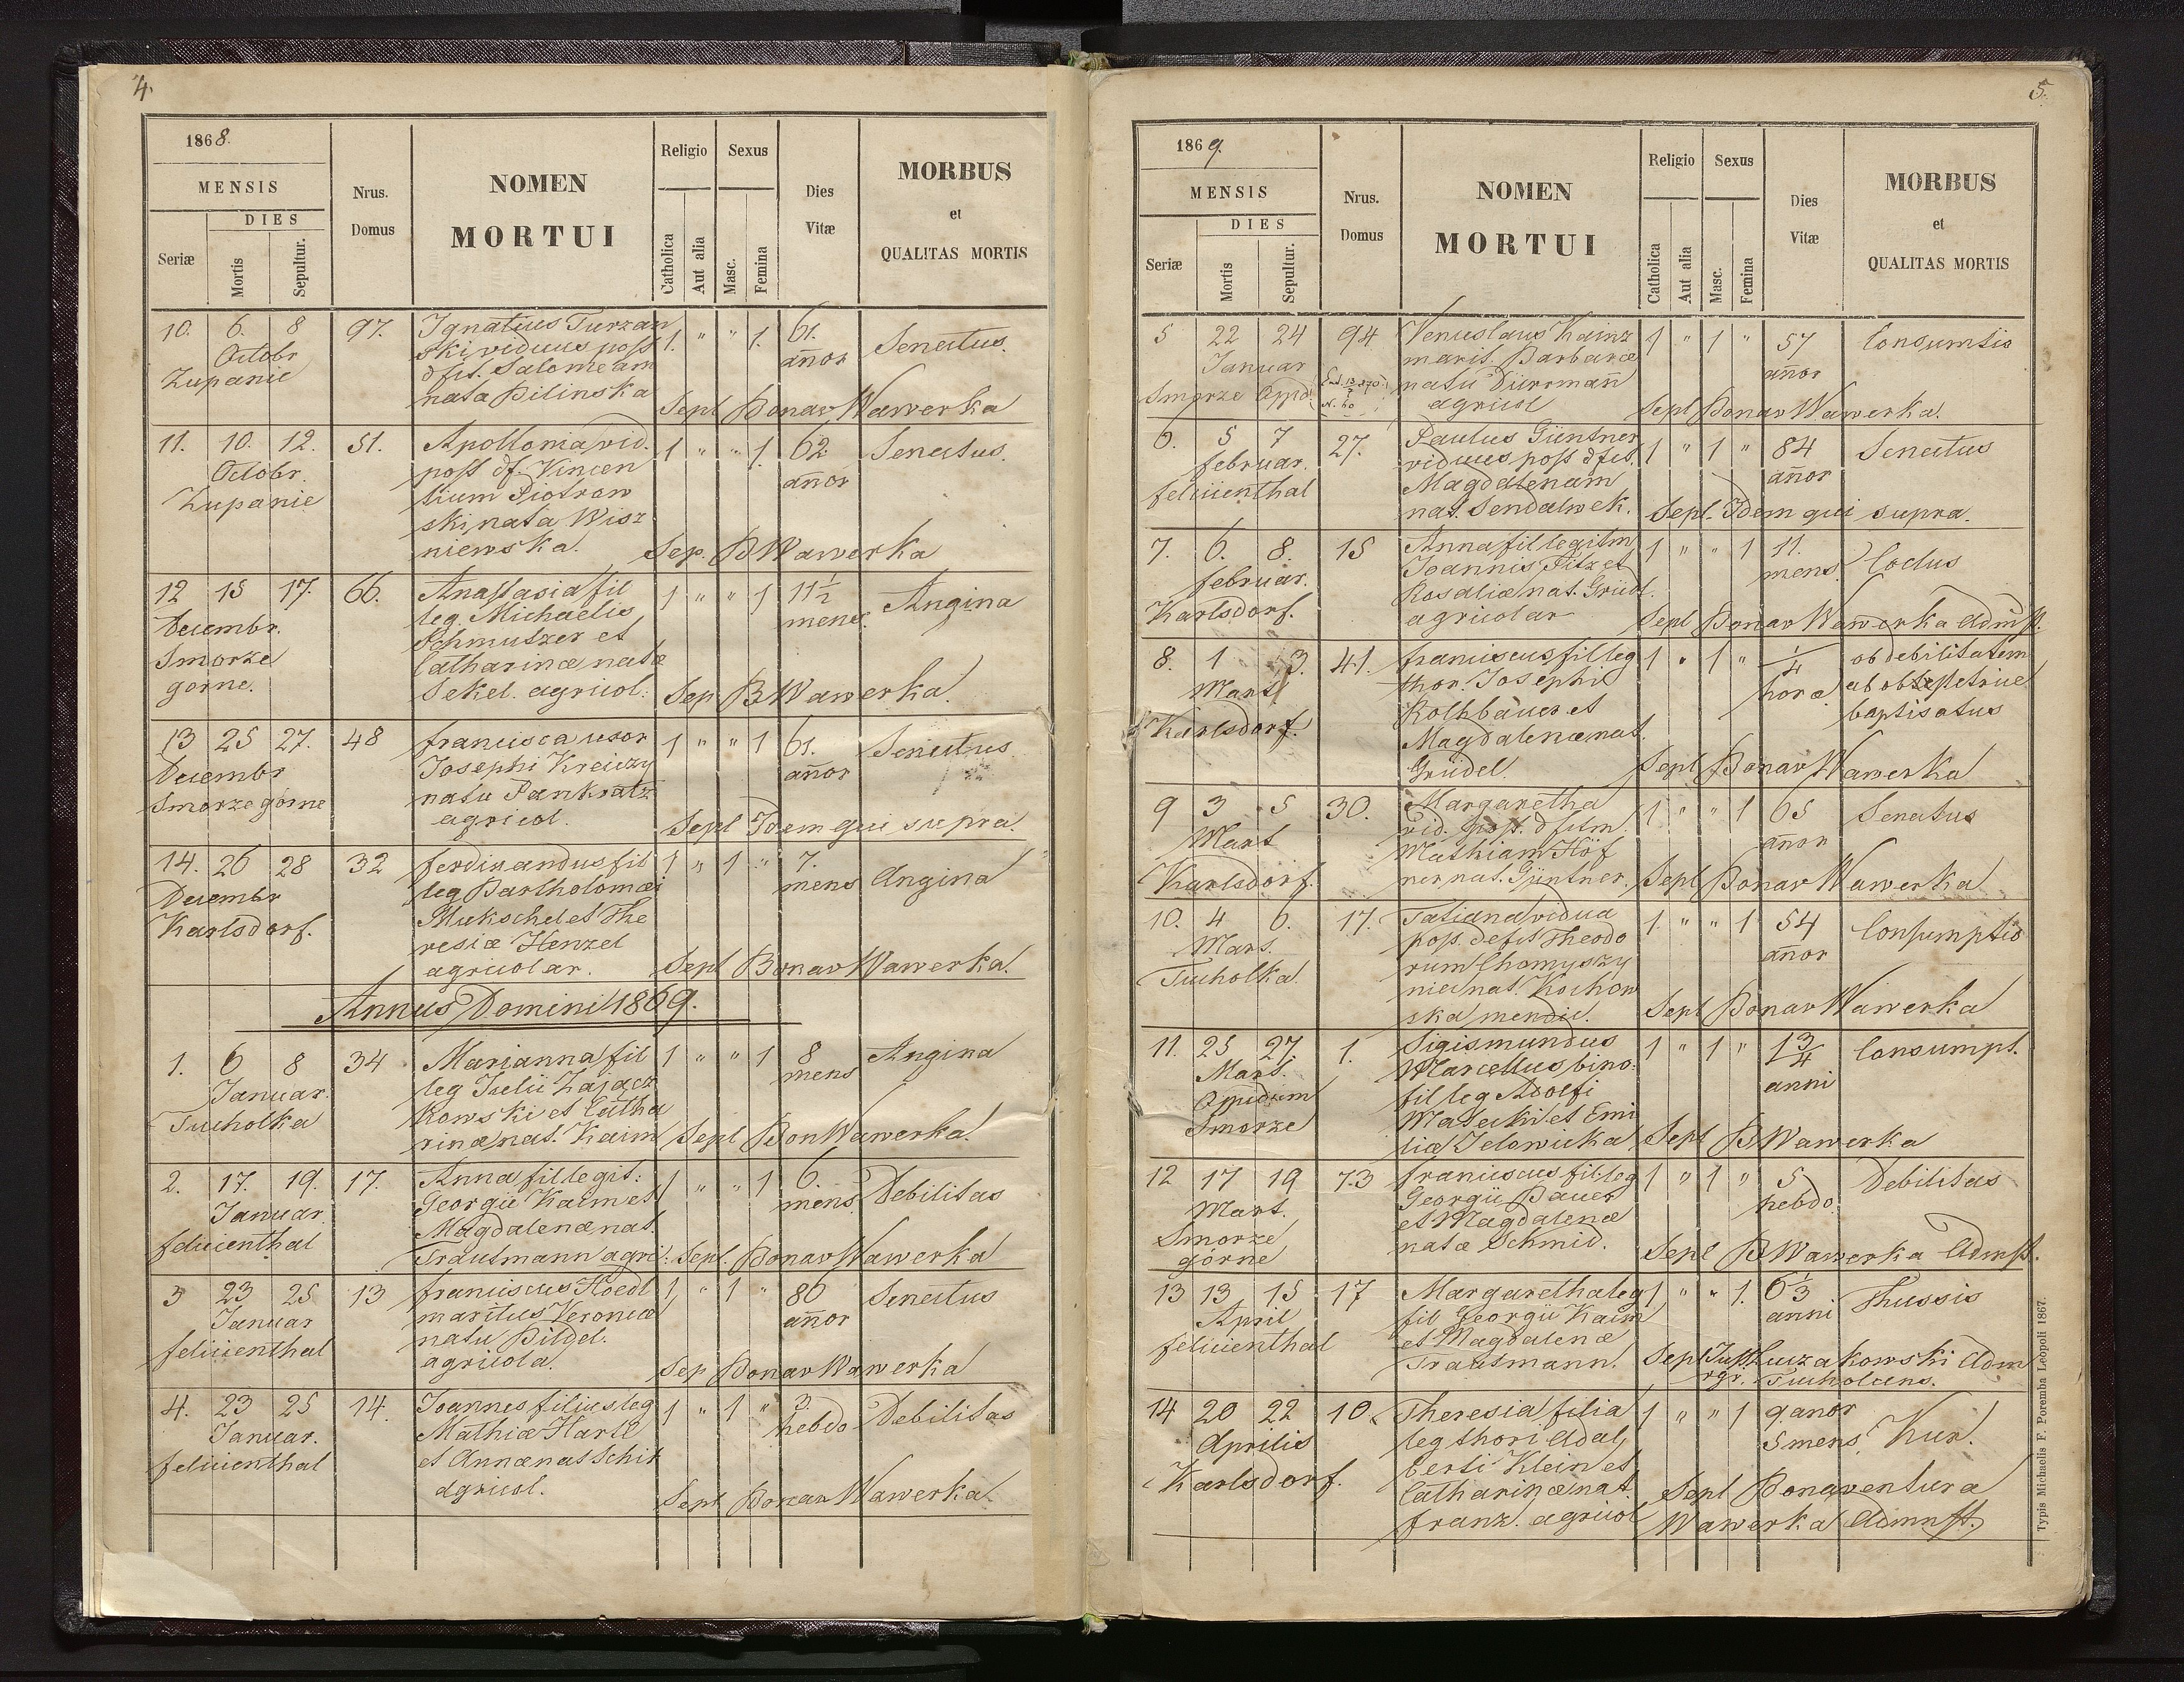 4.
1868.
MENSIS
DIES
Seriæ
Mortis
Sepultur.
Nrus.
Domus
NOMEN
MORTUI
Religio
Catholica
Aut alia
Sexus
Masc.
Femina
Dies
Vitæ
MORBUS
et
QUALITAS MORTIS
10. 6. 8 97. Ignatius Turzan 1. " " 1. 61. Senectus.
Octobr ski viduus post annor
Zupanie dfct. Salomeam
nata Bilinska Sepl Bonav Wawerka
11. 10. 12. 51. Apollonia vid. 1 " " 1 62 Senectus.
Octobr. post df. Vincen annor
Zupanie tium Piotrow
ski nata Wisz
niewska. Sep. B Wawerka
12 15 17. 66. Anastasia fil 1 " " 1 11 1/2 Angina
Decembr. leg. Michaelis mens.
Smorze Schmutzer et
gorne. Catharinæ natæ
Sekel. agricol. Sep B Wawerka
13 25 27. 48 francisca uxor 1 " " 1 61. Senectus
Decembr Josephi Kreuzy annor
Smorze górne nata Pankratz
agricol. Sepl Idem qui supra.
14. 26 28 32 ferdinandus fil 1 " 1 " 7. Angina
Decembr leg Bartholomæi mens
Karlsdorf. Mukschel et The
resiæ Henzel
agricolar. Sepl Bonav Wawerka.
Annus Domini 1869.
1. 6 8 34 Marianna fil 1 " " 1 8 Angina
Januar. leg Julii Zającz mens
Tucholka kowski et Catha
rinæ nat. Kaim Sepl Bon Wawerka.
2. 17. 19. 17. Anna fil legit: 1 " " 1 6. Debilitas
Januar. Georgii Kaim et mens.
felicienthal Magdalenæ nat.
Trautmann agri: Sepl. Bonav Wawerka
3 23 25 13 franciscus Hoedl 1 " 1 " 86 Senectus
Januar maritus Veronicæ annor
felicienthal natu Bildel.
agricola. Sep Bonav Wawerka
4. 23 25 14. Joannes filius leg 1 " 1 " 3. Debilitas
Januar. Mathiæ Hartl hebdo
felicienthal et Annæ nat Schik
agricol. Sepl Bonav Wawerka.
5.
1869.
MENSIS
DIES
Seriæ
Mortis
Sepultur.
Nrus.
Domus
NOMEN
MORTUI
Religio
Catholica
Aut alia
Sexus
Masc.
Femina
Dies
Vitæ
MORBUS
et
QUALITAS MORTIS
5 22 24 94 Venceslaus Hainz 1 " 1 " 57 Consumtio
Januar marit. Barbaræ annor
Smorze Oppid natu Dürrmann
N. 60 agricol Sepl Bonav Wawerka.
6. 5 7 27. Paulus Güntner 1 " 1 " 84 Senectus
februar. viduus post dfct. annor
felicienthal Magdalenam
nat. Sendalwek. Sepl. Idem qui supra.
7. 6. 8. 15 Anna fil legitm 1 " " 1 11. Coctus
februar. Joannis Pitz et mens.
Karlsdorf. Rosaliæ nat. Gridl.
agricolar Sepl Bonav Wawerka Admst.
8. 1 3. 41. franciscus fil leg 1 " 1 " 1/4 ob debilitatem
Mart thor. Josephi horæ ab obstetrice
Karlsdorf. Rothbauer et baptisatus
Magdalenæ nat.
Gridel. Sepl Bonav Wawerka
9 3 5 30. Margaretha 1 " " 1 65 Senectus
Mart vid. post. dfctm. annor
Karlsdorf. Mathiam Höf
ner nat. Güntner. Sepl Bonav Wawerka
10. 4 6. 17. Tatiana vidua 1. " " 1 54 Consumptio
Mart. post. defct Theodo annor
Tucholka rum Chomyszy
niec nat. Kochow
ska mendic. Sepl Bonav Wawerka
11. 25 27. 1. Sigismundus 1 " 1 " 1 3/4 Consumpt.
Mart. Marcellus bino. anni
Oppidum fil leg Adolfi
Smorze Matecki et Emi
liæ Jelowicka Sepl B Wawerka
12 17 19 73 franciscus fil leg 1 " 1 " 5 Debilitas
Mart. Georgii Bauer hebdo.
Smorze et Magdalenæ
górne natæ Schmid. Sepl B Wawerka Admst.
13 13 15 17 Margaretha leg 1 " " 1. 6 1/3 Thussis
April fil Georgii Kaim anni
felicienthal et Magdalenæ
Trautmann. Sepl Just Luczakowski Adm
rgr. Tucholcens.
14 20 22 10. Theresia filia 1 " " 1 9 anor
Aprilis leg thori Adal 5 mens.
Karlsdorf. berti Klein et
Catharinæ nat. Sepl Bonaventura
franz. agricol Wawerka Admnst.
Typis Michaelis F. Poremba Leopoli 1867.